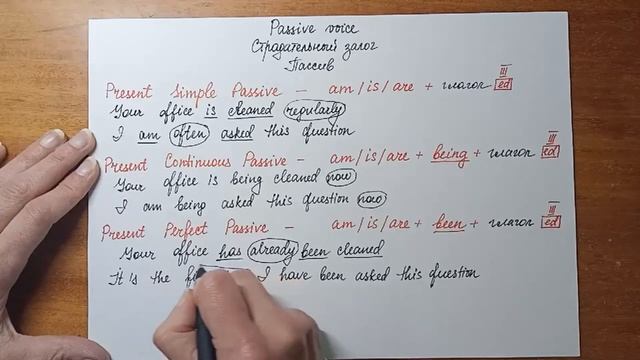 Passive voice
Страдательный залог
Пассив
Present Simple Passive – am/is/are + глагол III ed
Your office is cleaned regularly
I am often asked this question
Present Continuous Passive – am/is/are + being + глагол III ed
Your office is being cleaned now
I am being asked this question now
Present Perfect Passive – am/is/are + been + глагол III ed
Your office has already been cleaned
It is the I have been asked this question